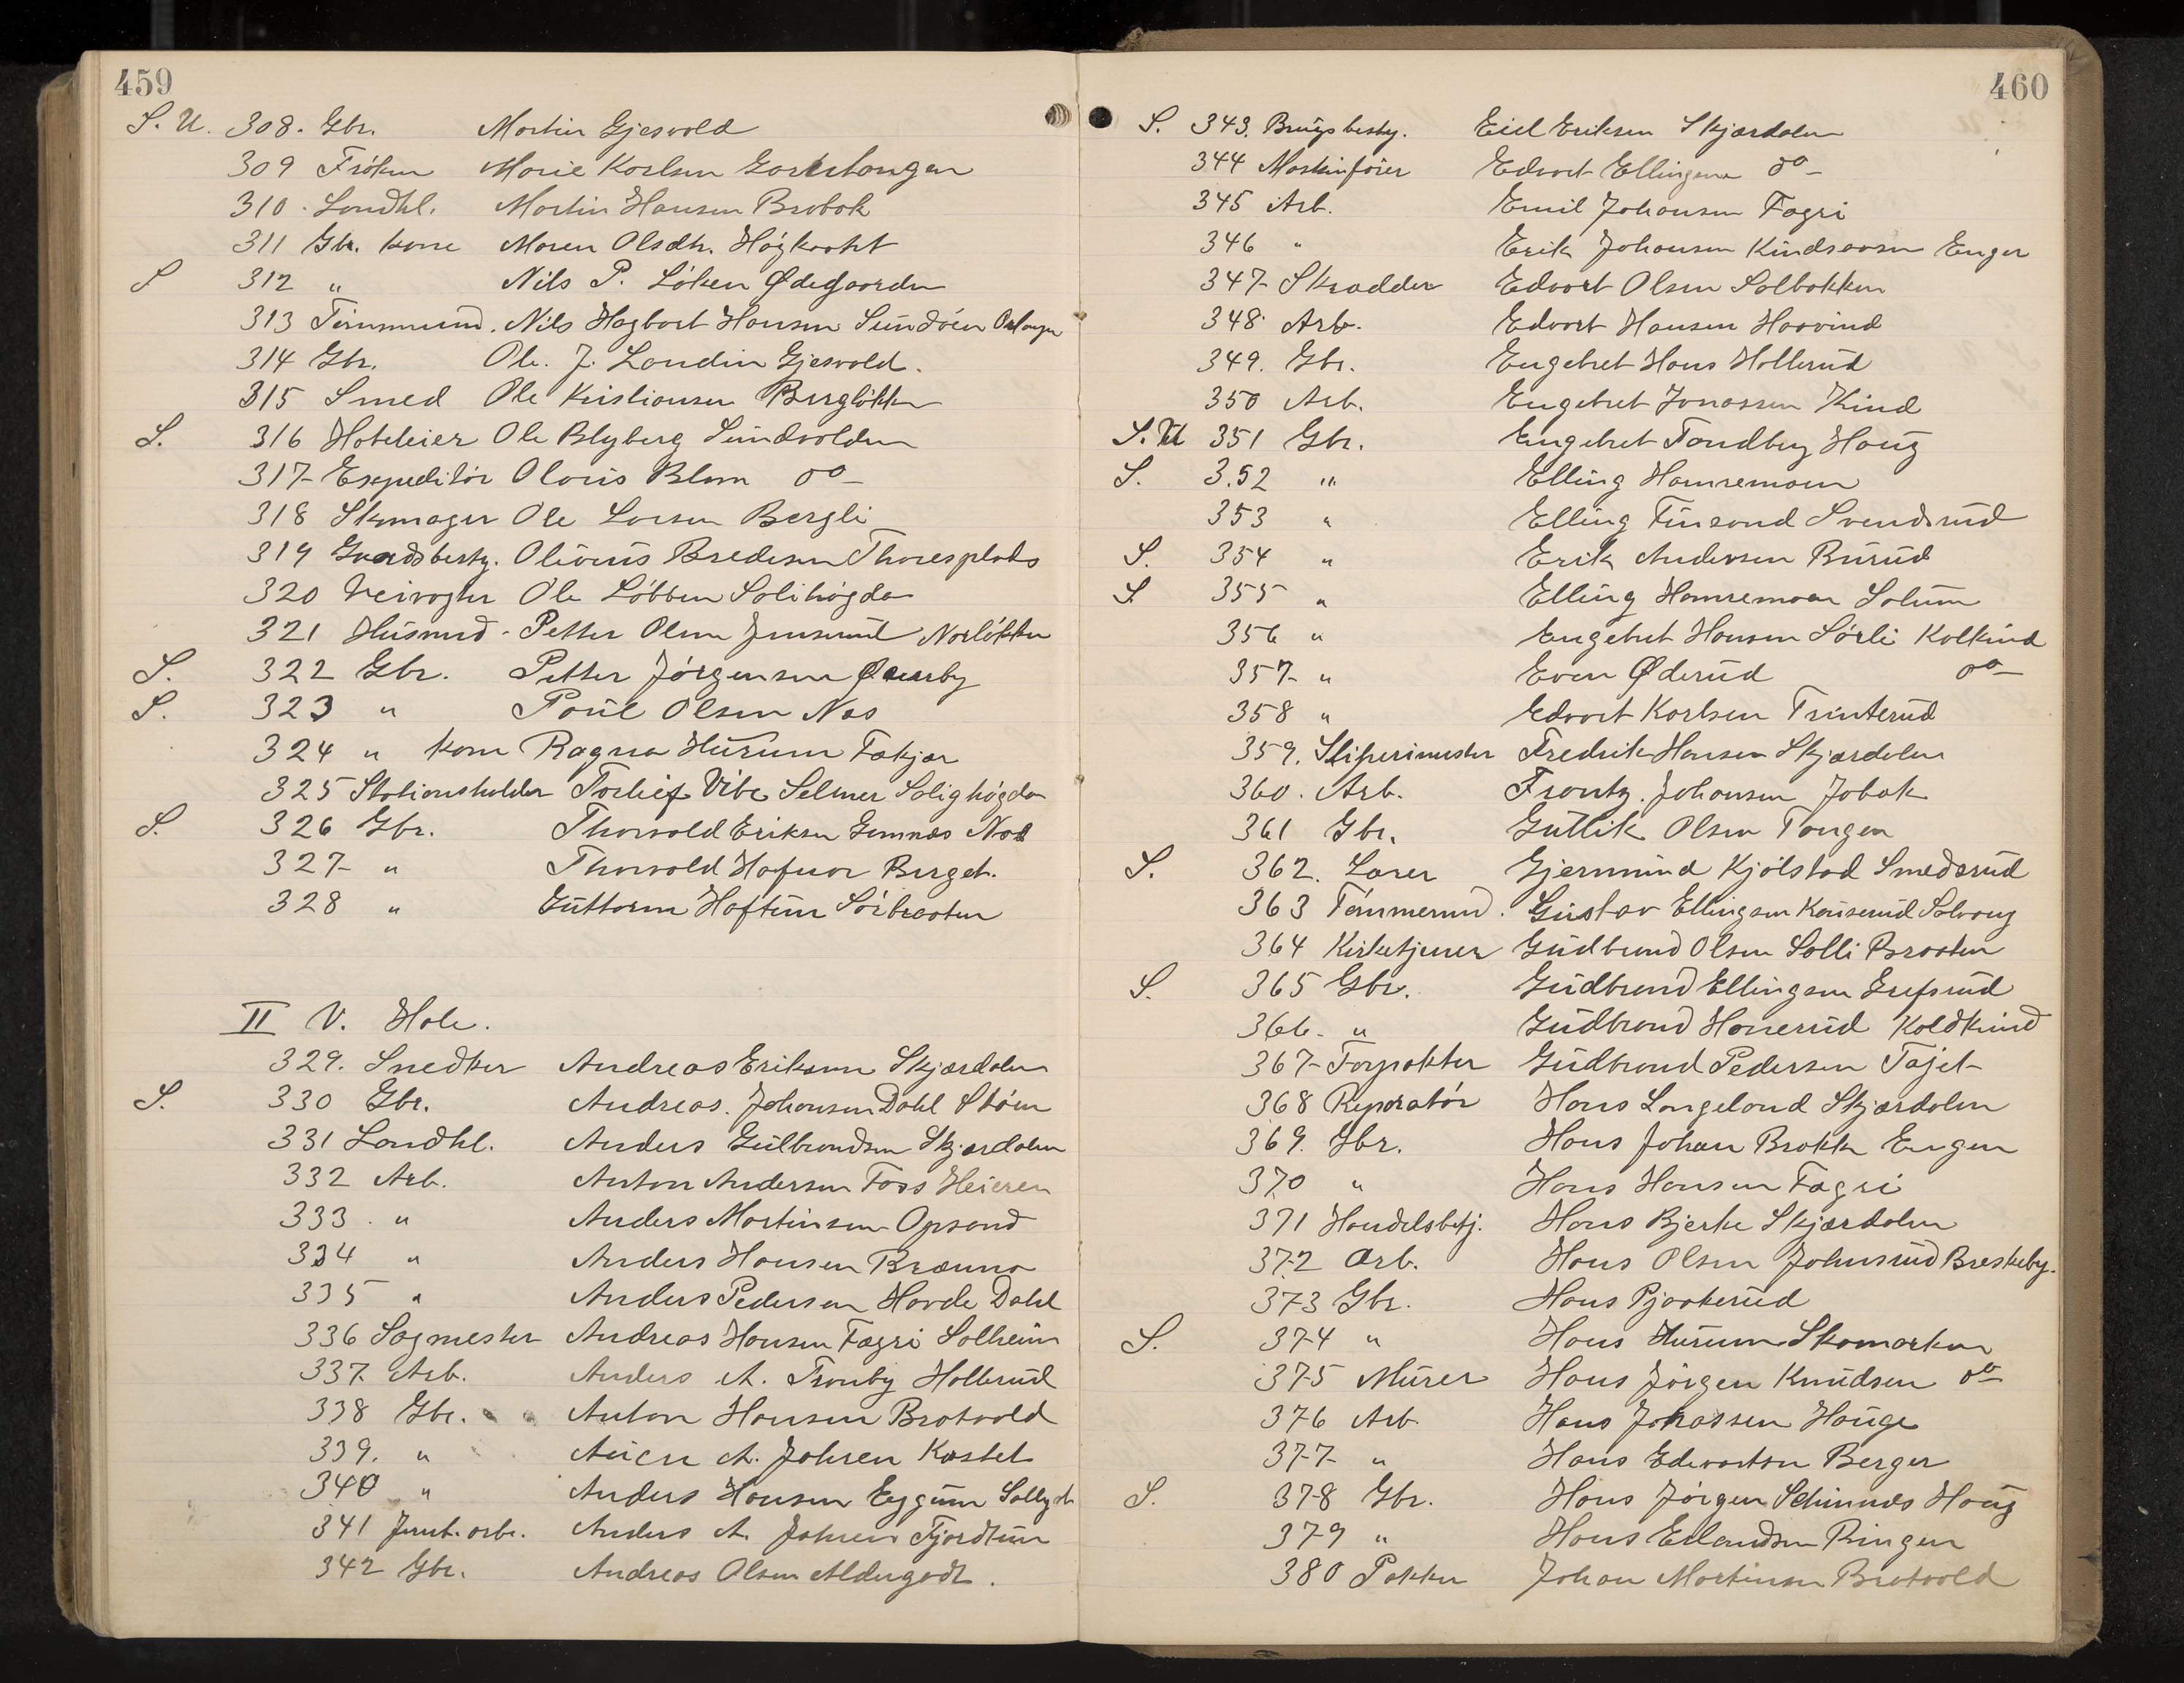 459
S. U. 308. Gbr. Martin Gjesvold
309 Frøken Marie Karlsen
310. Landhl. Martin Hansen Brobak
311 Gbr. kone Maren Olsdtr.
S 312 " Nils P. Løken Ødegaarden
313 Tømmermd. Nils Hagbart Hansen Sundøen
314 Gbr. Ole. J. Landin Gjesvold.
315 Smed Ole Kristiansen Bergløkken
S. 316 Hoteleier Ole Blyberg Sundvolden
317 Expeditør Olaus Blom do
318 Skomager Ole Larsen Bergli
319 Gaardsbesty. Olivius Bredesen Thoresplads
320 Veivogter Ole Løbben Solihøgda
321 Husmd. Petter Olsen Jensrud Norløkken
S. 322 Gbr. Petter Jørgensen
S. 323 " Paul Olsen Næs
324 " kone Ragna Hurum Fækjær
325 Stationsholder Torleif Vibe Selmer Solighøgda
S. 326 Gbr. Thorvald Eriksen Gomnæs Næs
327 " Thorvald Hafnor Berget.
328 " Guttorm Haftun Sørbraaten
II V. Hole.
329. Snedker Andreas Eriksen Skjærdalen
S. 330 Gbr. Andreas. Johansen Dahl Støen
331 Landhl. Anders Gulbrandsen Skjærdalen
332 Arb. Anton Andersen Foss Heieren
333. " Anders Martinsen Opsand
334 " Anders Hansen Brænna
335 " Anders Pedersen Havde Dahl
336 Sagmester Andreas Hansen Fagri Solheim
337. Arb. Anders A. Tronby Hollerud
338 Gbr. Anton Hansen Brotvold
339. " A. Jahren Kastet
340 " Anders Hansen Eggum
341 Jernb. arb. Anders A. Jahren Fjordtun
342 Gbr. Andreas Olsen
460
S. 343. Brugsbesty. Eriksen Skjærdalen
344 Maskinfører Edvart Ellingsen do
345 Arb. Emil Johansen Fagri
346 " Erik Johansen Enger
347 Skrædder Edvart Olsen Solbakken
348 Arb. Edvart Hansen Haavind
349. Gbr. Engebret Hans Hollerud
350 Arb. Engebret Jonassen Kind
S. U 351 Gbr. Engebret Tandberg Haug
S. 352 " Elling Hamremoen
353 " Elling Finsand Svendsrud
S. 354 " Erik Andersen Burud
S 355 " Elling Hamremoen Solum
356 " Engebret Hansen Sørli Kolkind
357 " Even Øderud do
358 " Edvart Karlsen Trinterud
359. Sliperimester Fredrik Hansen Skjærdalen
360. Arb. Frantz. Johansen Jobak
361 Gbr. Gutlik Olsen Tangen
S. 362. Lærer Gjermund Kjølstad Smedsrud
363 Tømmermd. Gustav Ellingsen Solvang
364 Kirketjener Gudbrand Olsen Solli Braaten
S. 365 Gbr. Gudbrand Ellingsen Grefsrud
366. " Gudbrand Honerud Koldkind
367 Forpakter Gudbrand Pedersen Tajet
368 Reperatør Hans Langeland Skjærdalen
369. Gbr. Hans Johan Brakke Engen
370 " Hans Hansen Fagri
371 Handelsbetj. Hans Bjerke Skjærdalen
372 Arb. Hans Olsen Johnsrud Breskeby.
373 Gbr. Hans Pjaakerud
S. 374 " Hans Hurum Skomarken
375 Murer Hans Jørgen Knudsen do
376 Arb. Hans Jonassen Hauge
377 " Hans Edvartsen Berger
S. 378 Gbr. Hans Jørgen Haug
379 " Hans Erlandsen Ringen
380 Pakker Johan Martinsen Brotvold